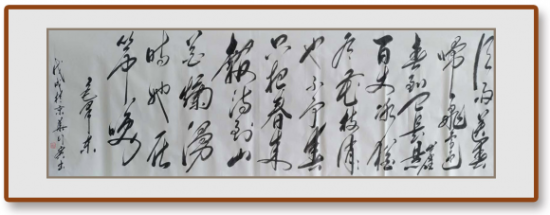 风雨送春
归飞雪迎
春到已是悬崖
百丈冰犹
有花枝俏
也不争春
只把春来
报待到山
花烂漫
时她在
丛中笑
戊戌